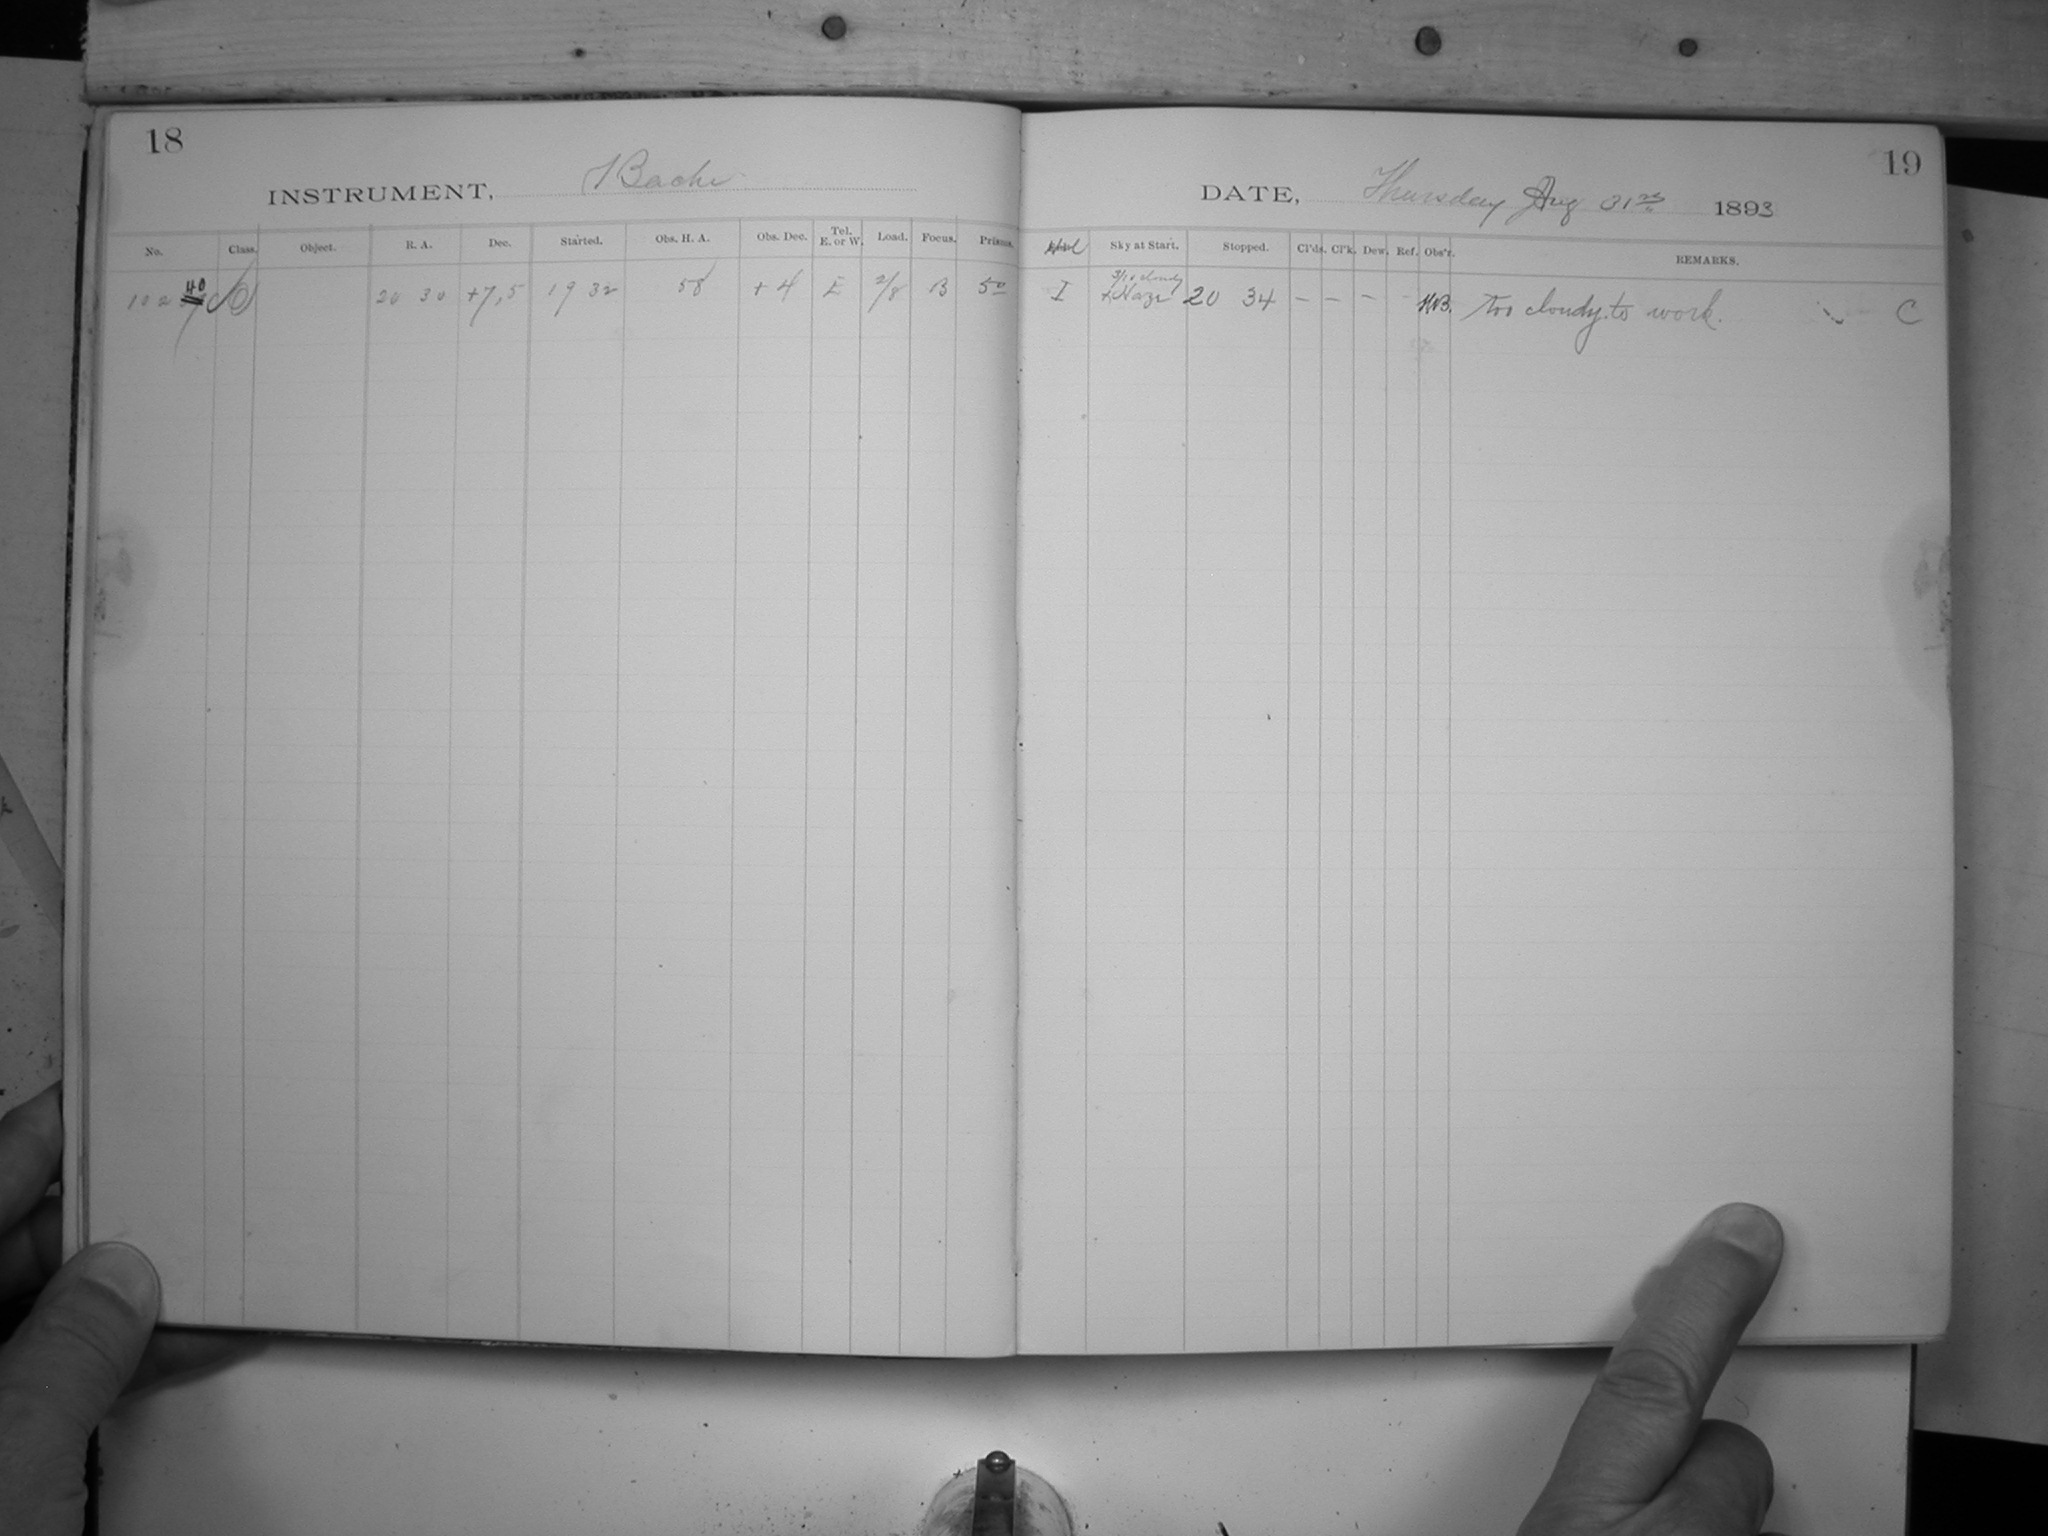 18
INSTRUMENT, Bache
No. Class. Object. R. A. Dec. Started. Obs. H. A. Obs. Dec. Tel. E. or W. Load. Focus. Prisms.
20 30 +7,5 19 32 58 +4 E 2/8 B 50
19
DATE, Thursday Aug 31st 1893
Sky at Start. Stopped. Cl'ds. Cl'k. Dew. Ref. Obs'r. REMARKS.
I 3/10 cloudy & Haze 20 34 – – – – too cloudy to work. C